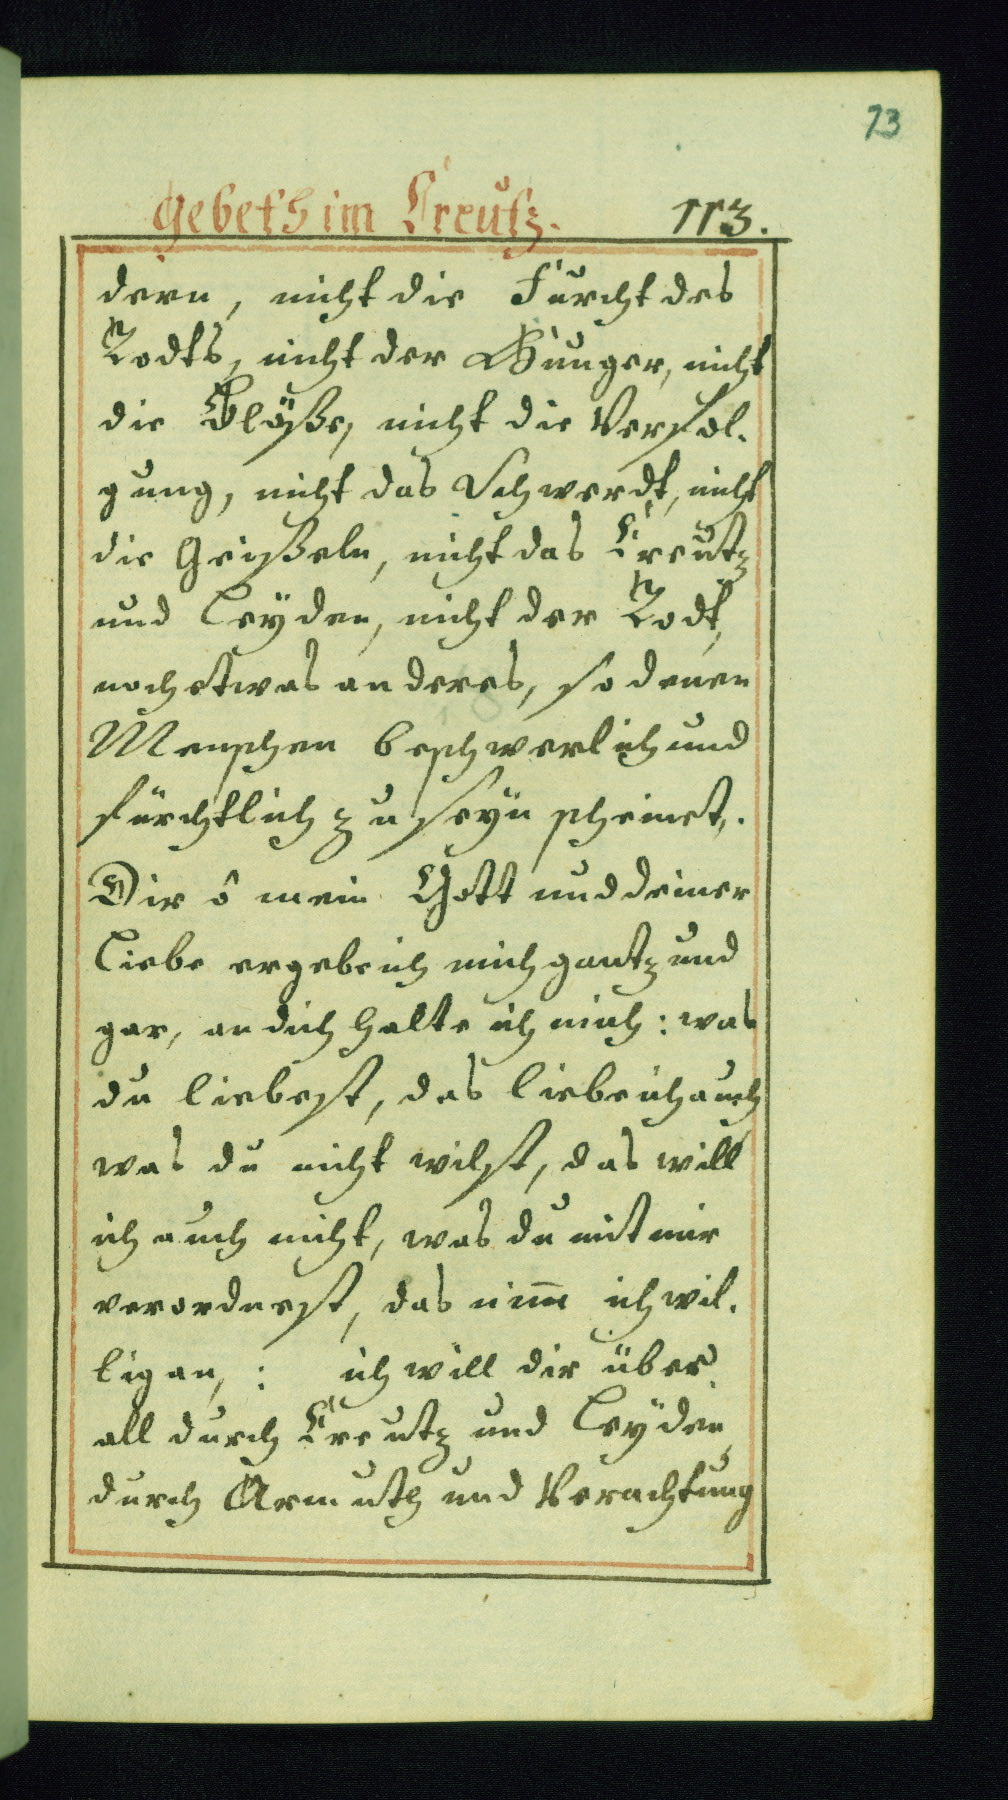 73
Gebeth im Creutz. 113.
dern, nicht die Furcht des
Todts, nicht der Hunger, nicht
die Blöße, nicht die Verfol-
gung, nicht das Schwerdt, nicht
die Geißeln, nicht das Creutz
und Leÿden, nicht der Todt,
noch etwas anderes, so denen
Menschen beschwerlich und
fürchtlich zu seyn scheinet.
Dir ô mein Gott und deiner
Liebe ergebe ich mich gantz und
gar, an dich halte ich mich: was
du liebest, das liebe ich auch
was du nicht wilst, das will
ich auch nicht, was du mit mir
verordnest, das nim̄ ich wil-
lig an,: ich will dir über
all durch Creutz und Leÿden
durch Armuth und Verachtung